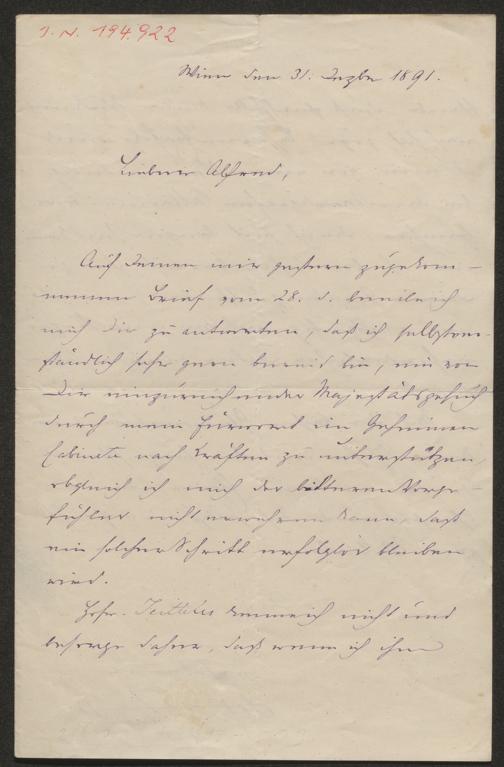 J. N. 194.922
Wien den 31. Dezbr 1891.
Lieber Alfred,
Auf Deinen mir gestern zugekom-
menen Brief vom 28. d. beeile ich
mich Dir zu antworten, daß ich selbstver-
ständlich sehr gern bereit bin, ein von
Dir einzureichendes Majestätsgesuch
durch mein Fürwort im Geheimen
Cabinete nach Kräften zu unterstützen,
obgleich ich mich des bitteren Vorge-
fühles nicht erwehren kann, daß
ein solcher Schritt erfolglos bleiben
wird.
Hofr. kenne ich nicht und
besorge daher, daß wenn ich ihm